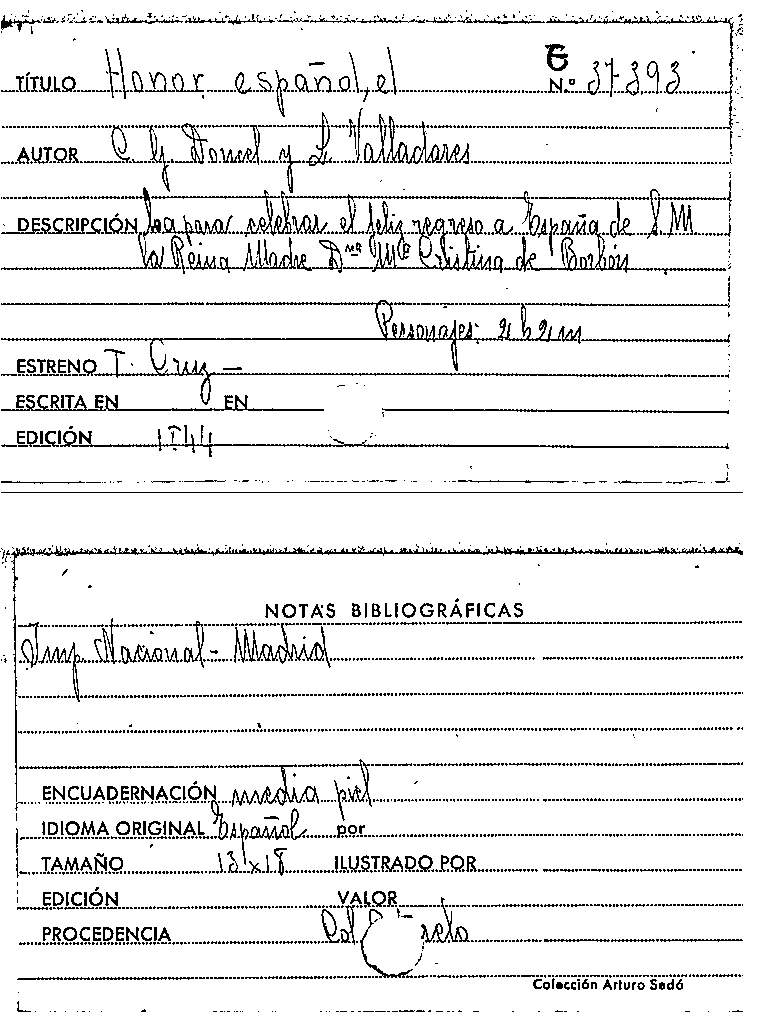 E
TÍTULO Honor español, el N.º 37393
AUTOR C. G. Doncel y L. Valladares
DESCRIPCIÓN Loa para celebrar el feliz regreso a España de S. M
la Reina Madre Dña Mª Cristina de Borbón
Personajes: 2 h 2 m
ESTRENO T. Cruz –
ESCRITA EN EN
EDICIÓN 1844
NOTAS BIBLIOGRÁFICAS
Imp Nacional - Madrid
ENCUADERNACIÓN media piel
IDIOMA ORIGINAL Español por
TAMAÑO 13 x 18 ILUSTRADO POR
EDICIÓN VALOR
PROCEDENCIA Col
Colección Arturo Sedó